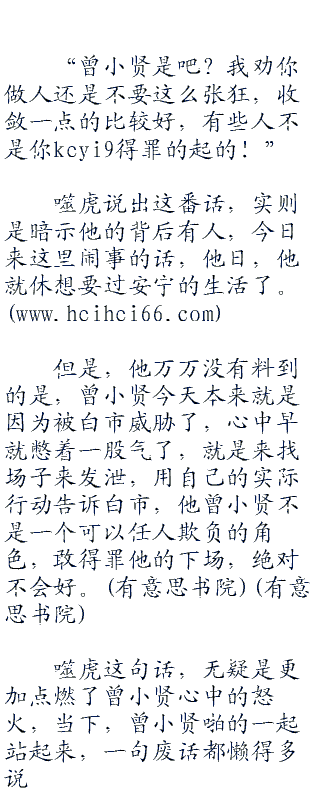 “曾小贤是吧？我劝你
做人还是不要这么张狂，收
敛一点的比较好，有些人不
是你kcyi9得罪的起的！”
噬虎说出这番话，实则
是暗示他的背后有人，今日
来这里闹事的话，他日，他
就休想要过安宁的生活了。
(www.hcihci66.com)
但是，他万万没有料到
的是，曾小贤今天本来就是
因为被白市威胁了，心中早
就憋着一股气了，就是来找
场子来发泄，用自己的实际
行动告诉白市，他曾小贤不
是一个可以任人欺负的角
色，敢得罪他的下场，绝对
不会好。(有意思书院)(有意
思书院)
噬虎这句话，无疑是更
加点燃了曾小贤心中的怒
火，当下，曾小贤啪的一起
站起来，一句废话都懒得多
说